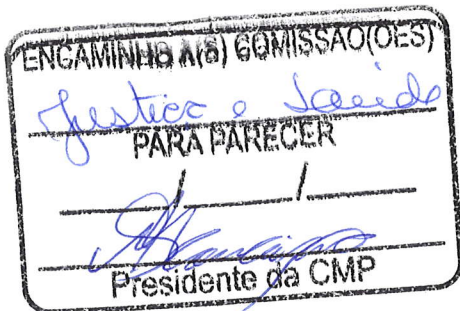 ENCAMINHO A(S) COMISSAO(OES)
Justica e Saude
PARA PARECER
/ /
Presidente da CMP